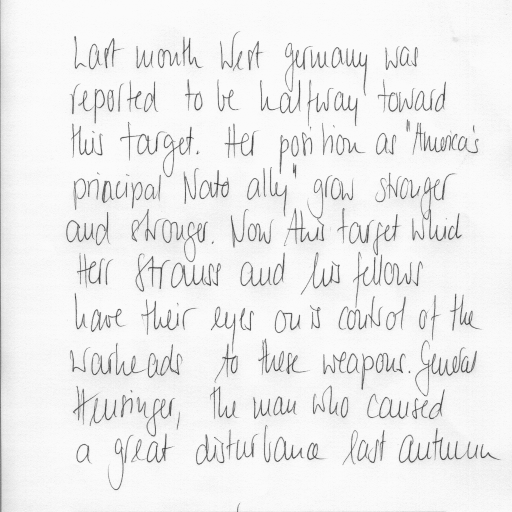 Last month West germany was
reported to be halfway toward
this target. Her position as "America's
principal Nato ally" grow stronger
and stronger. Now this target which
Herr Strauss and his fellows
have their eyes on is control of the
warheads to these weapons. General
Heusinger, the man who caused
a great disturbance last autumn